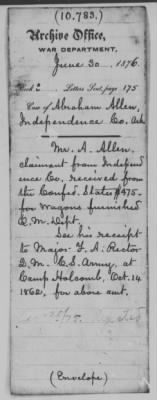 (10.783.)
Archive Office,
WAR DEPARTMENT,
June 30 1876.
Letters Sent, page 175
Case of Abraham Allen,
Independence Co. Ark
Mr. A. Allen,
claimant from Independ
ence Co. received from
the Confed. States $475.-
for wagons furnished
Q.M. Dept.
See his receipt
to Major F. A. Rector
Q.M. C.S. Army, at
Camp Holcomb, Oct. 14
1862, for above amt.
(Envelope)